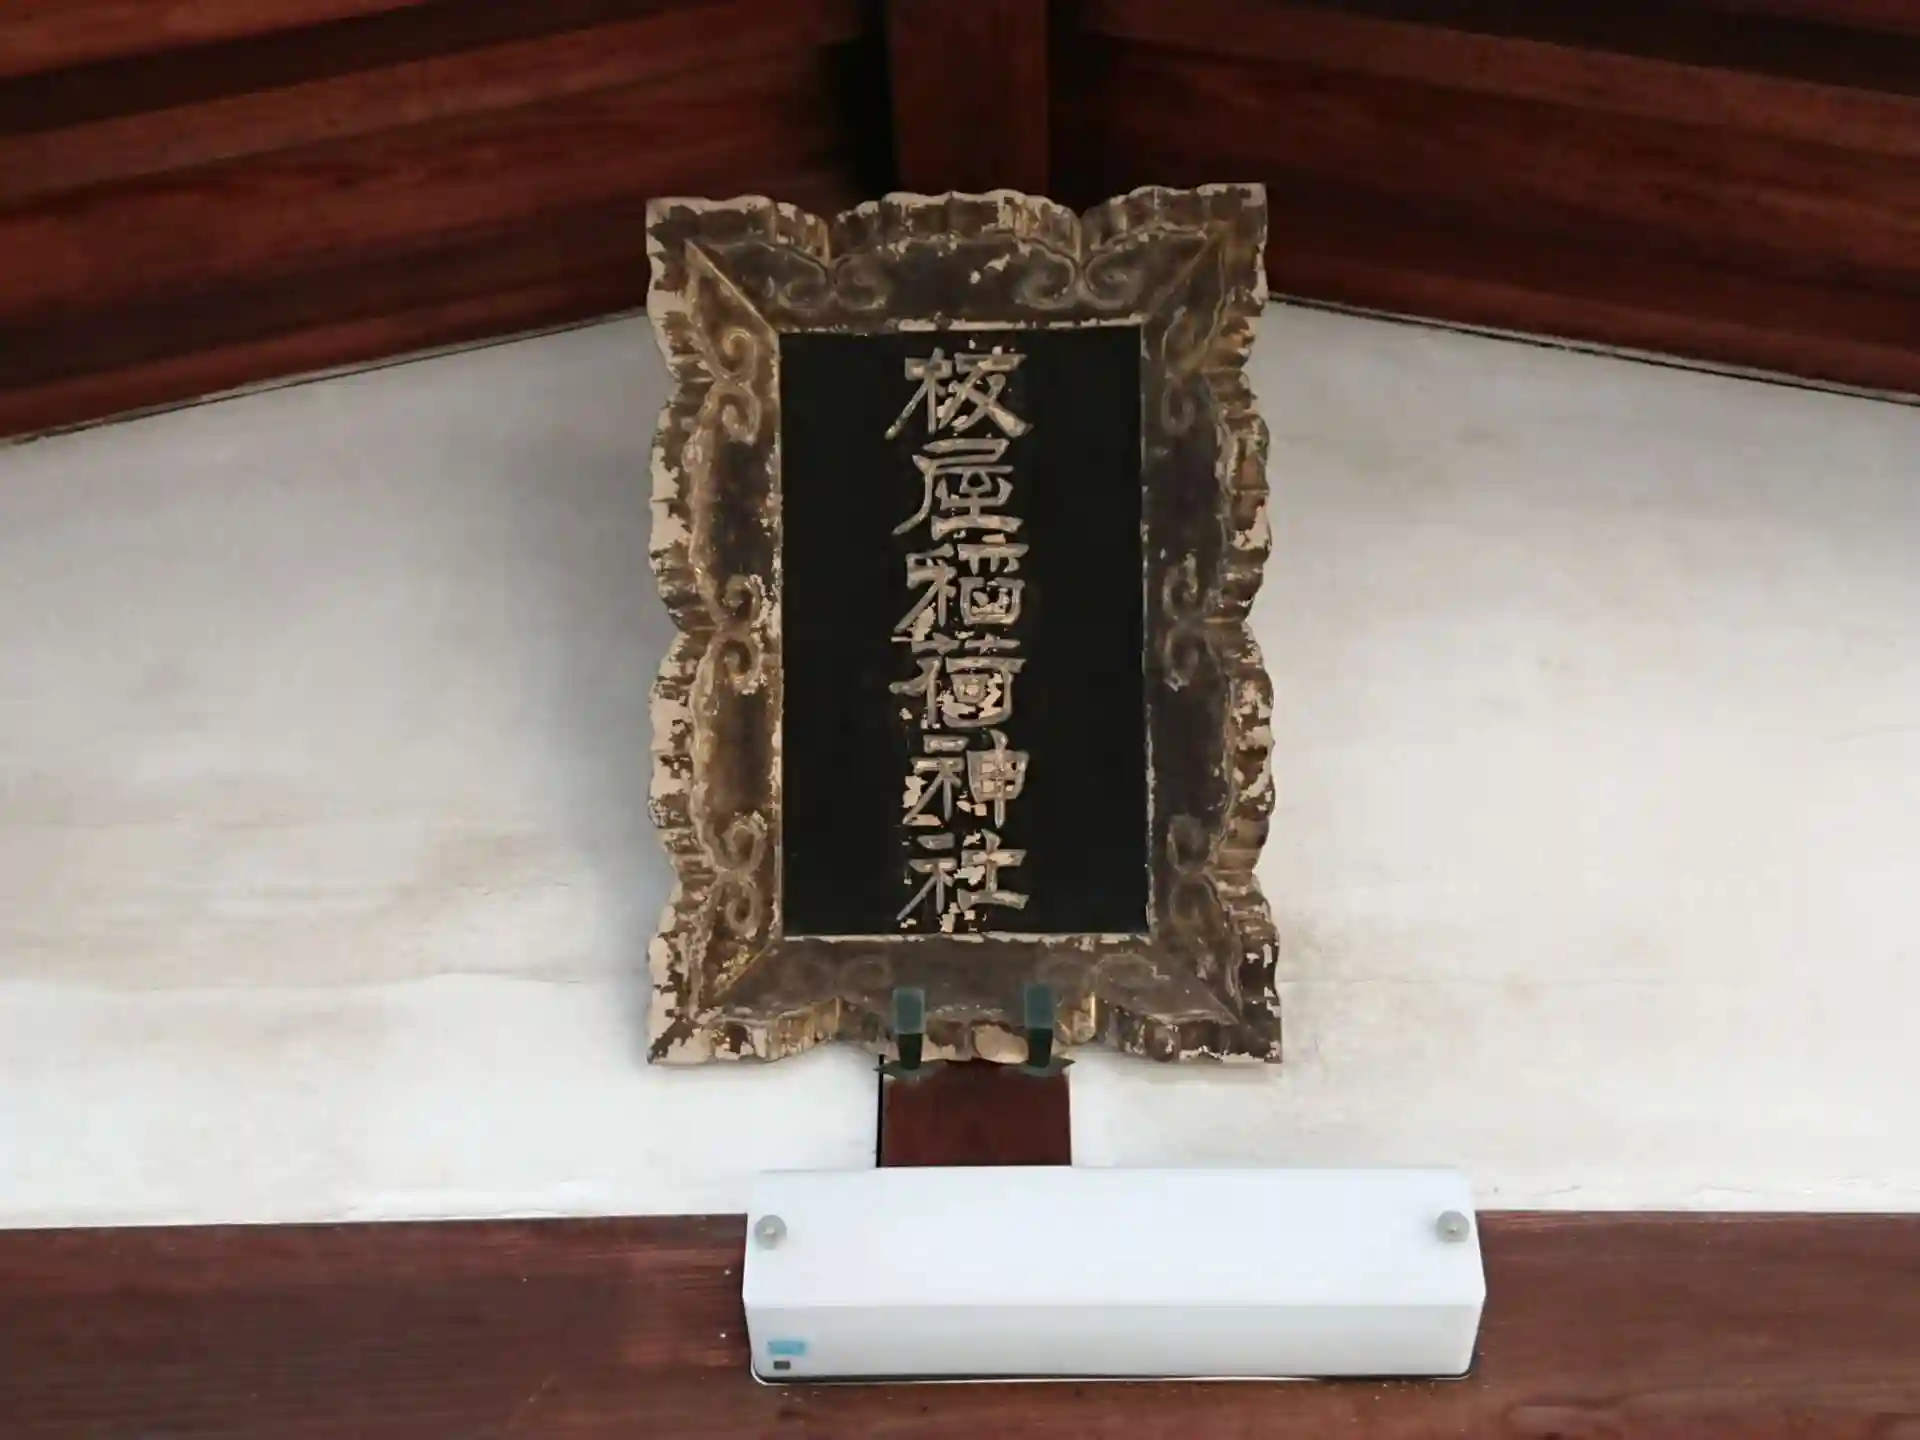 板屋稲荷神社